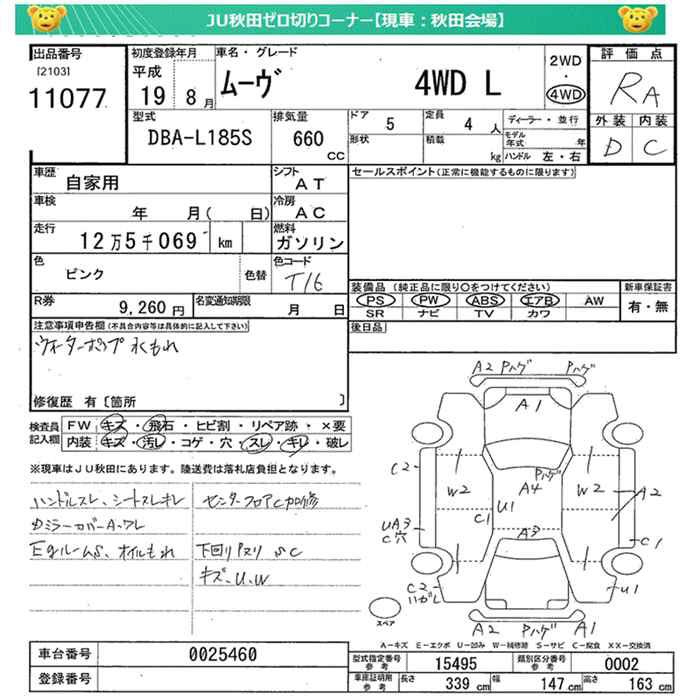 JU秋田ゼロ切りコーナー【現車：秋田会場】
出品番号
[2103]
11077
初度登録年月
平成
19 8 月
車名・グレード
ムーヴ 4WD L
2WD
・
4WD
評価点
RA
外装 内装
D C
型式
DBA-L185S
排気量
660
CC
ドア 5
定員 4 人
形状
積載 kg
ディーラー・並行
モデル年式 年
ハンドル 左・右
車歴
自家用
シフト
AT
車検
年 月( 日)
冷房
AC
走行
12万5千069 km
燃料
ガソリン
色
ピンク
色替
色コード
T16
R券
9,260 円
名変通知期限
月 日
セールスポイント(正常に機能するものに限ります)
装備品 (純正品に限り○をつけてください)
新車保証書
PS PW ABS エアB AW
SR ナビ TV カワ
有・無
後日品
注意事項申告欄(不具合内容等は具体的に記入して下さい)
ウォーターポンプ水もれ
修復歴 有〔箇所 〕
検査員記入欄
FW キズ・飛石・ヒビ割・リペア跡・×要
内装 キズ・汚レ・コゲ・穴・スレ・キレ・破レ
※現車はJU秋田にあります。陸送費は落札店負担となります。
ハンドルスレ、シートスレキレ
センターフロアC加修
Dミラーカバー
EgルームS、オイルもれ
下回りPヌリ SC
キズ・U.W
A2 Pハゲ Pハゲ
A1
Pハゲ
C2
W2
A4
W2
A2
U1
C1
UA3
C穴
A3
C1
C2
ハガレ
U1
A2 Pハゲ A1
スペア
A－キズ E－エクボ U－凹み W－補修跡 S－サビ C－腐食 XX－交換済
車台番号 0025460
登録番号
型式指定番号参考 15495
類別区分番号参考 0002
車庫証明用参考
長さ 339 cm
幅 147 cm
高さ 163 cm